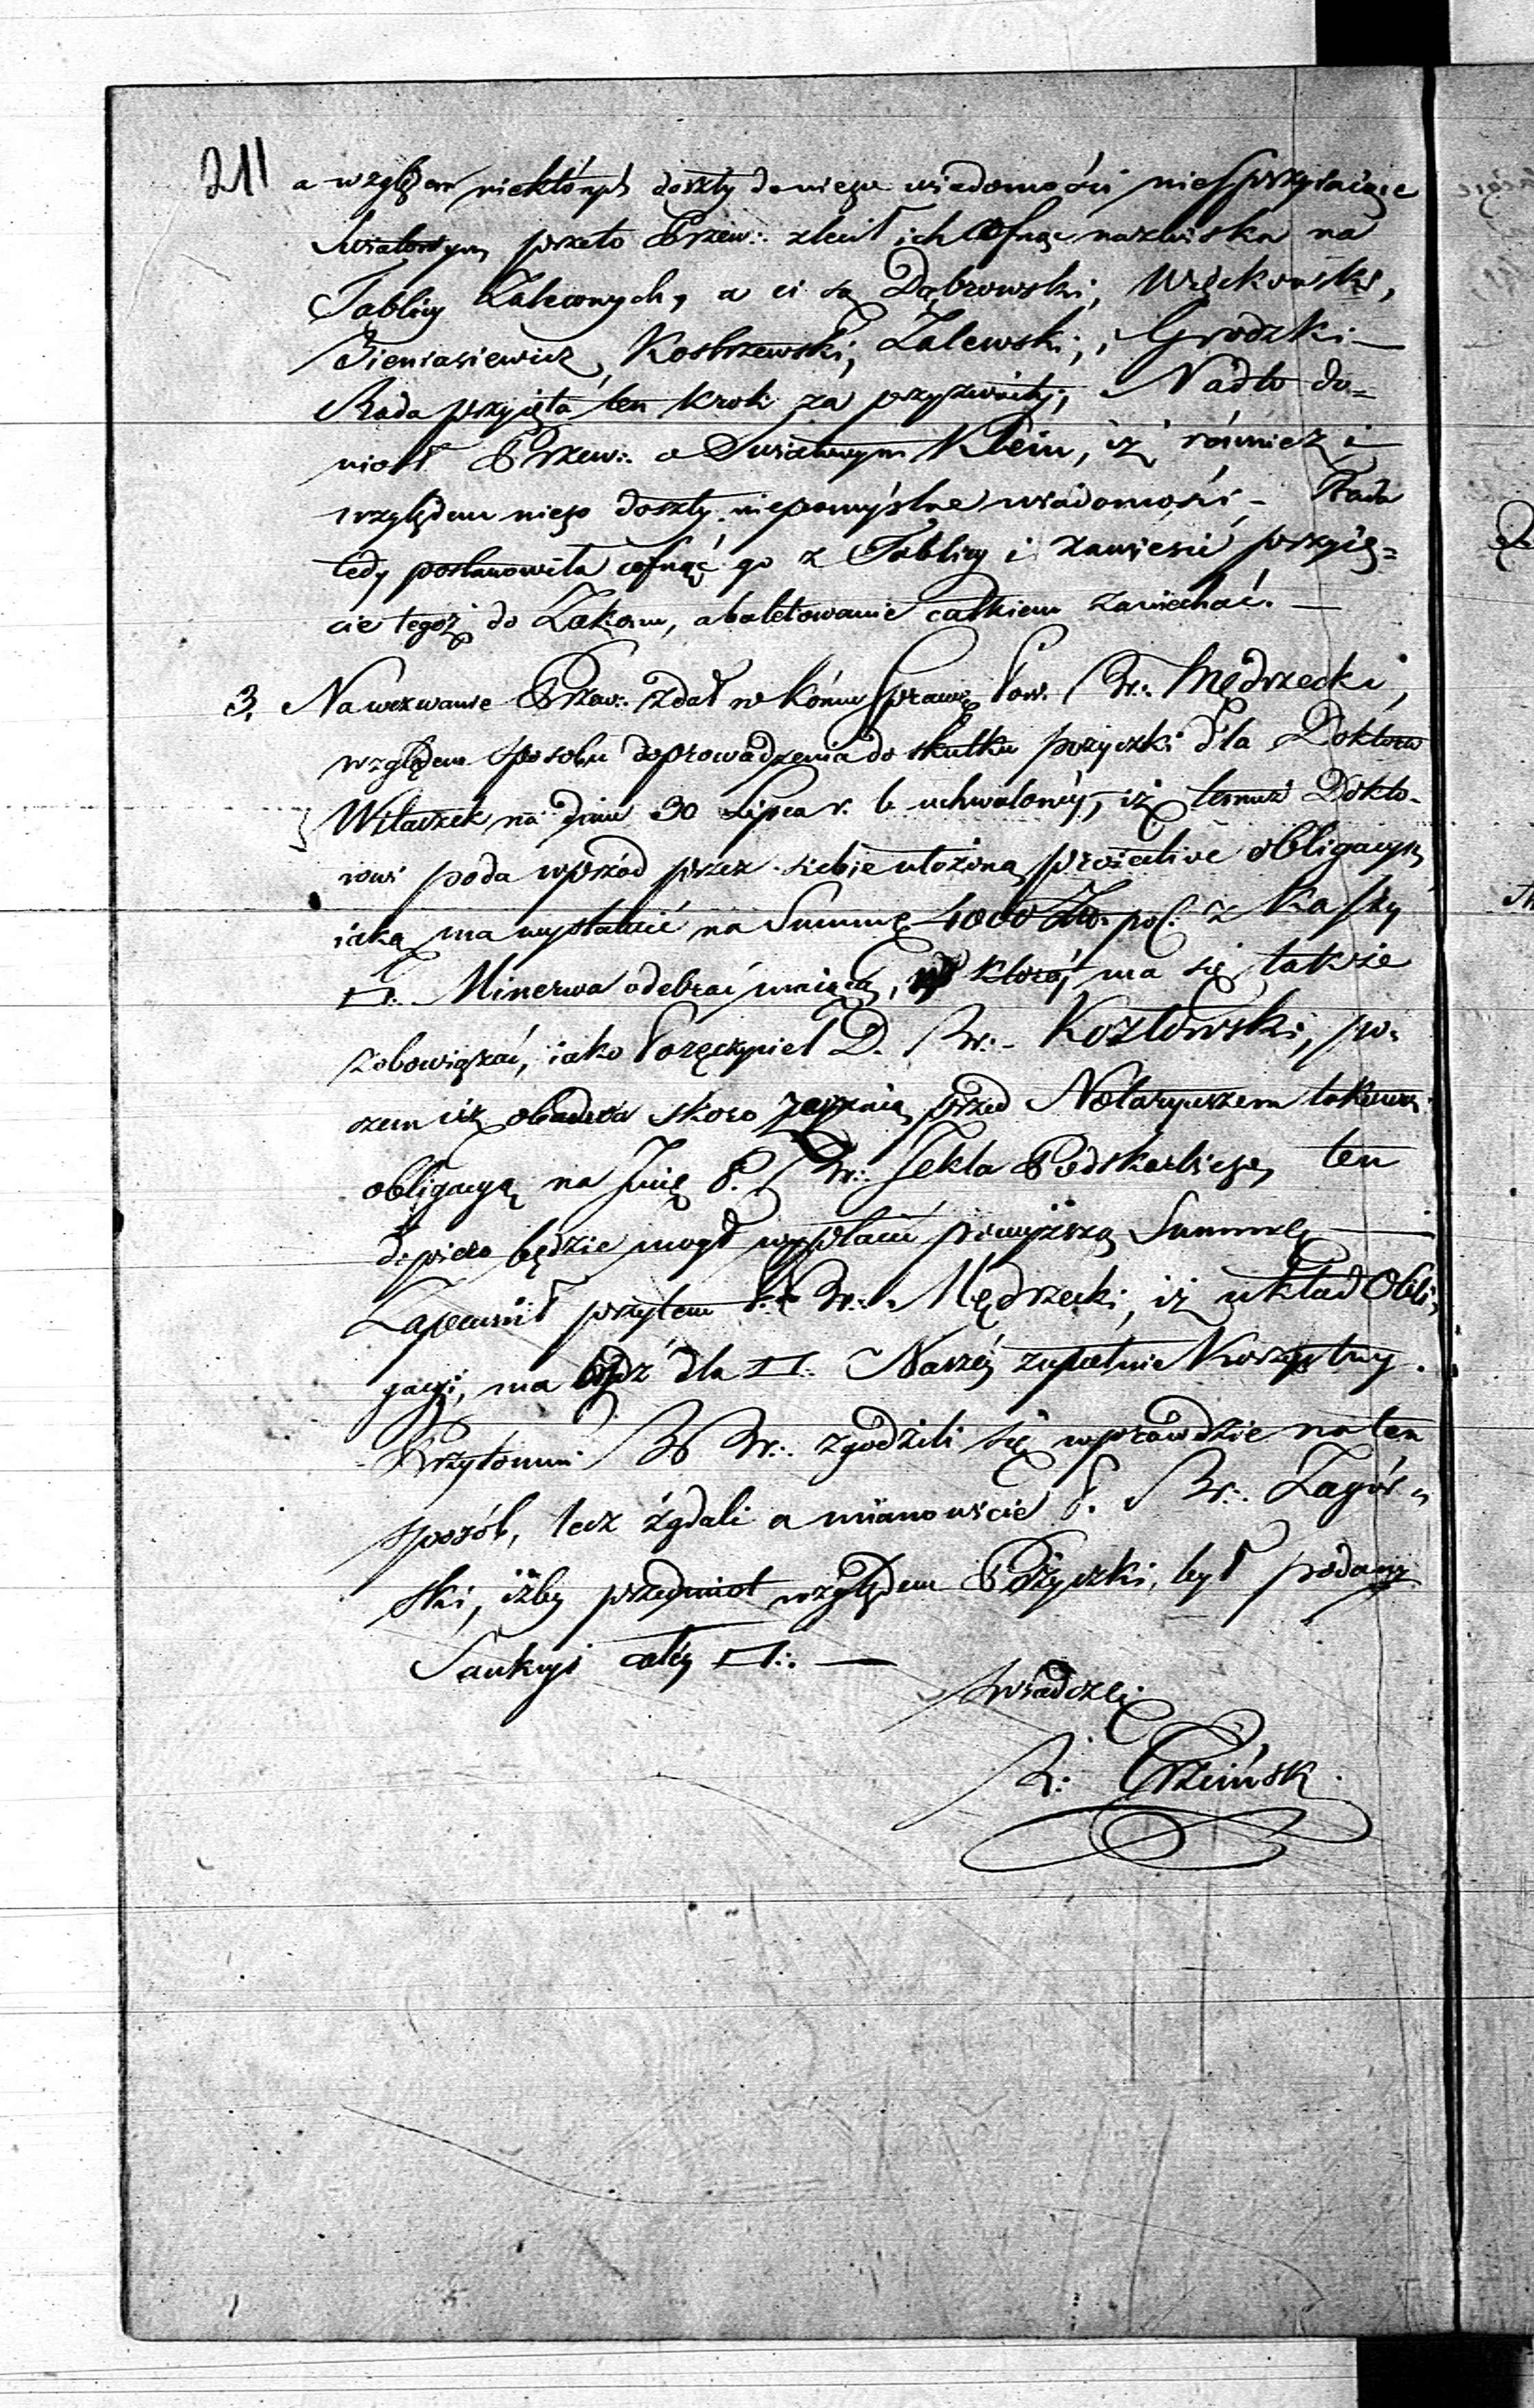 211
a względem niektórych doszły do niego wiadomości niesprzyiaiące
Swiatowym, przeto Przew:. zlecił ich cofnąc nazwiska na
Tablicy Zaleconych, a ci są Dąbrowski, Wręckowski,
Sieniasiewicz, Kostrzewski, Zalewski, i Grodzki —
Rada przyięła ten krok za przyzwoity; Nadto do=
niosł Przew:. o Swiatowym Klein, iż również i
względem niego doszły niepomyślne wiadomości — Rada
tedy postanowiła cofnąć go z Tablicy i zawiesić przyię=
cie tegoż do Zakonu, a baletowanie całkiem zaniechać. —
3. Na wezwanie Przew:. zdał w końcu sprawę Pow. Br:. Mędrzecki,
względem sposobu doprowadzenia do skutku pożyczki dla Doktora
Wilaszek na dniu 30 Lipca r. b. uchwalonéy, iż temuż Dokto-
rowi poda wprzód przez siebie ułożoną obligacyą
iaką ma wystawić na Summę 4000 Złw. pol: z Kassy
□:. Minerwa odebrać maiącą, w któréy ma się także
zobowiązać, iako Poręczyciel D. Br:. Kozłowski, po=
czem iż obadwa skoro zeznią przed Notaryuszem takową
obligacyą na Jmię P. Br:. Tekla Podskarbiego, ten
dopiero będzie mogł wypłacić powyższą Summę —
Zapewnił przytem P. Br:. Mędrzecki, iż układ Obli=
gacyi, ma bydź dla □:. Naszéy zupełnie korzystny.
Przytomni BBr:. zgodzili się wprawdzie na ten
sposób, lecz żądali a mianowicie P. Br:. Zagór=
ski, iżby przedmiot względem Pożyczki, był podany
Sankcyi całéy □:. —
Swiadczę